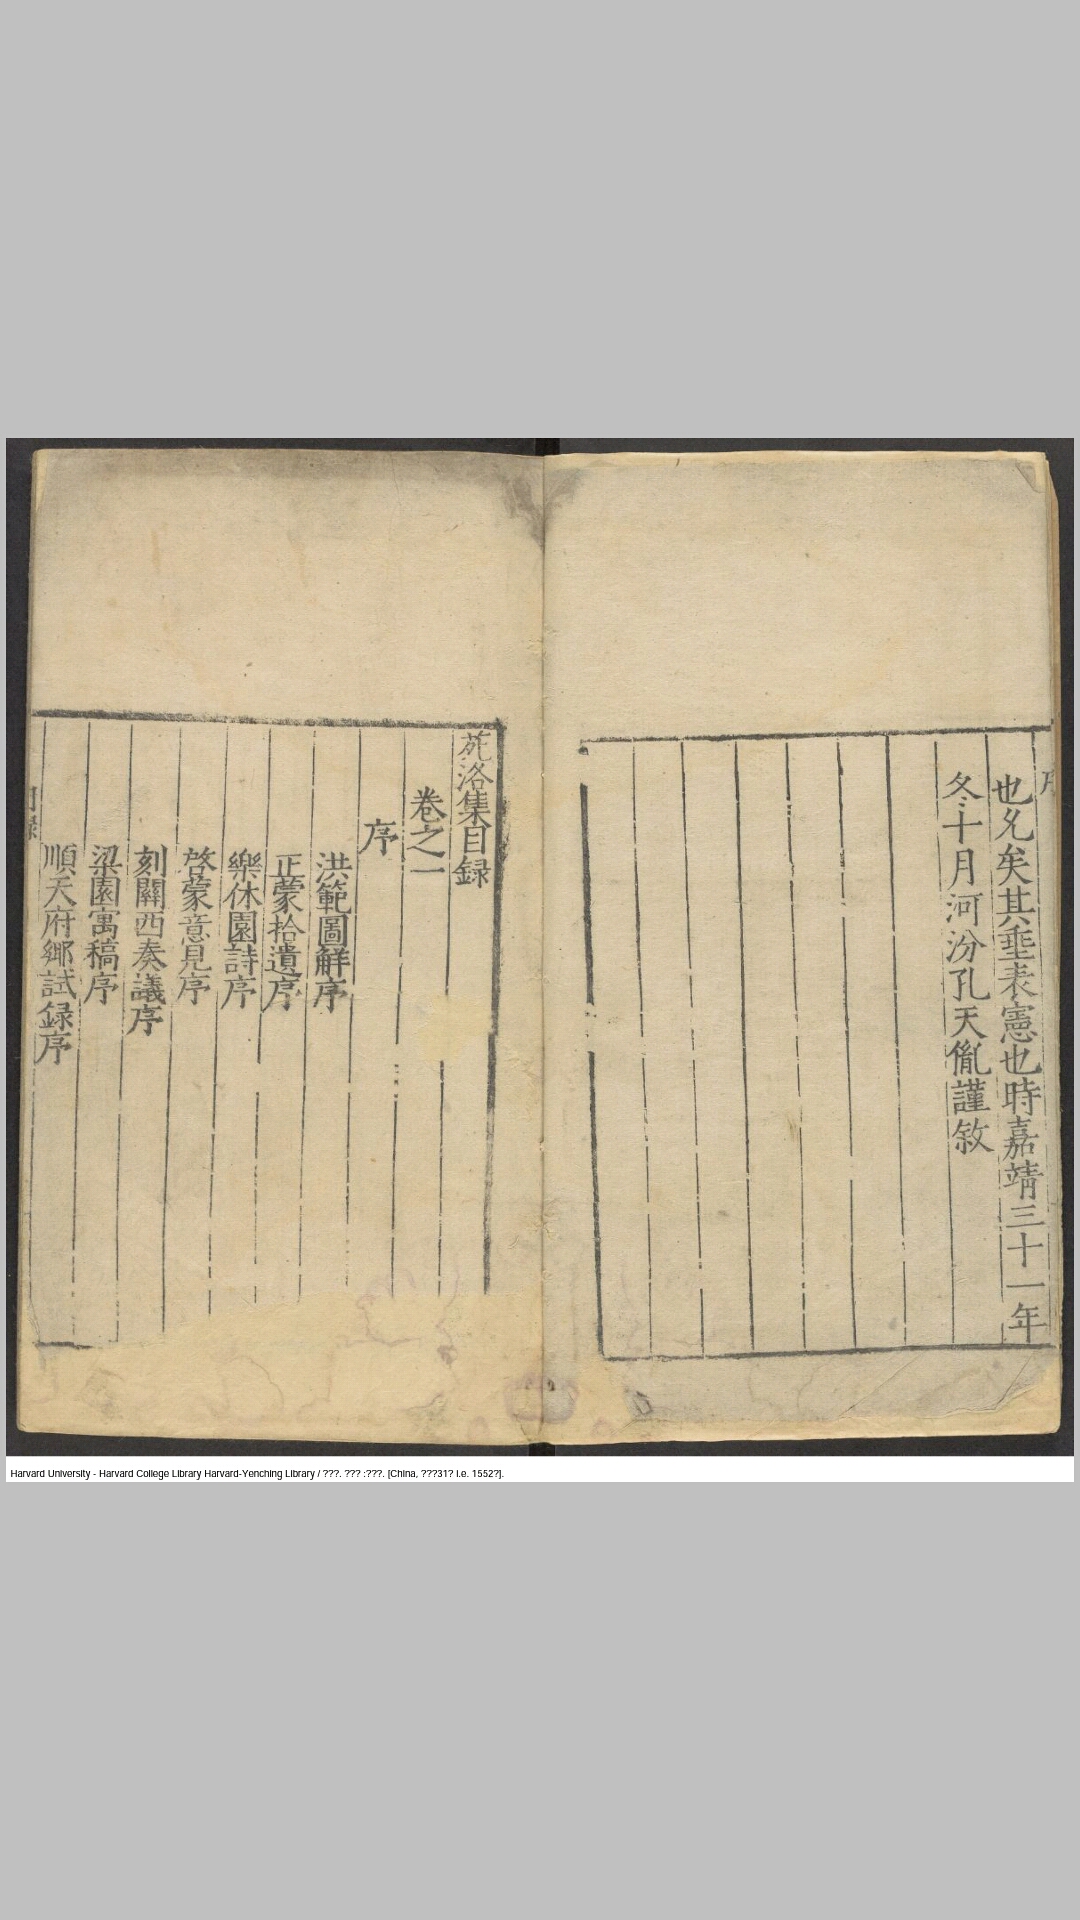 也久矣其垂表憲也時嘉靖三十一年
冬十月河汾孔天胤謹敘
苑洛集目録
卷之一
序
洪範圖解序
正蒙拾遺序
樂休園詩序
啓蒙意見序
刻關西奏議序
梁園寓稿序
順天府鄉試録序
Harvard University - Harvard College Library Harvard-Yenching Library / ???. ??? :???. [China, ???31? i.e. 1552?].